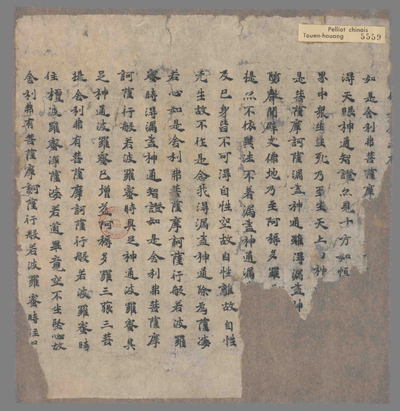 Pelliot chinois
Touen-houang 5559
如是舍利弗菩薩摩
得天眼神通智證亦見十方如恒
界中眾生生死乃至生天上神
是菩薩摩訶薩漏盡神通雖得漏盡神
墮聲聞辟支佛地乃至阿耨多羅
提亦不依異法不著漏盡神通漏
及己身皆不可得自性空故自性離故自性
无生故不作是念我得漏盡神通除為薩婆
若心如是舍利弗菩薩摩訶薩行般若波羅
蜜時得漏盡神通智證如是舍利弗菩薩摩
訶薩行般若波羅蜜時具足神通波羅蜜具
足神通波羅蜜已增益阿耨多羅三藐三菩
提舍利弗有菩薩摩訶薩行般若波羅蜜時
住檀波羅蜜淨薩婆若道畢竟空不生慳心故
舍利弗有菩薩摩訶薩行般若波羅蜜時住